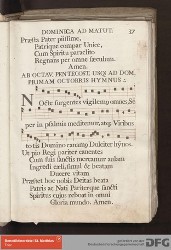 DOMINICA AD MATUT. 37
Præsta Pater piissime,
Patrique compar Unice,
Cum Spiritu paraclito
Regnans per omne sæculum.
Amen.
AB OCTAV. PENTECOST. USQ AD DOM.
PRIMAM OCTOBRIS HYMNUS :
Nocte surgentes vigilemus omnes, Sem
per in psalmis meditemur, atq; Viribus
totis Domino canamus Dulciter hymnos.
Ut pio Regi pariter canentes
Cum suis sanctis mereamur aulam
Ingredi cæli, simul & beatam
Ducere vitam
Præstet hoc nobis Deitas beata
Patris ac Nati Pariterque sancti
Spiritus cujus reboat in omni
Gloria mundo. Amen.
DFG